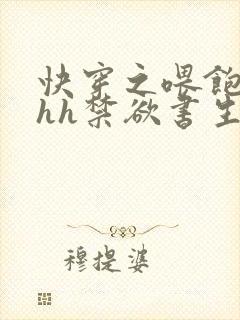 快穿之喂飽
hh禁欲書生
穆提婆